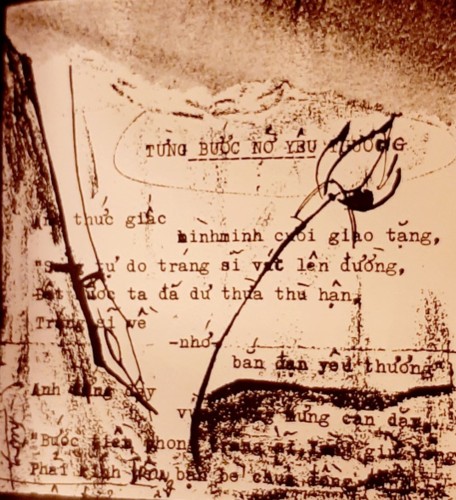 TỪNG BƯỚC NỞ YÊU THƯƠNG
Anh thức giấc
bìnhminh cười giao tặng,
tự do tráng sĩ vác lên đường,
Đất nước ta đã dư thừa thù hận,
Tráng sĩ về
-nhớ-
bắn đạn yêu thương"
Anh đứng dậy
mừng căn dặn
"Bước tiên phong tráng sĩ
Phải kính yêu bạn bè chưa